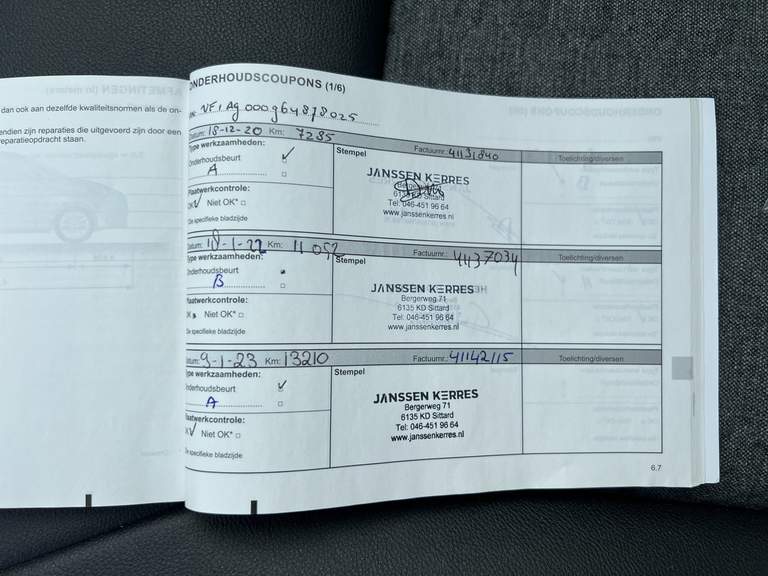 AFMETINGEN (in meters)
dan ook aan dezelfde kwaliteitsnormen als de on-
endien zijn reparaties die uitgevoerd zijn door een
reparatieopdracht staan.
ONDERHOUDSCOUPONS (1/6)
Datum: 18-12-20 Km: 7285 Factuurnr.: 41131840
Type werkzaamheden: Stempel Toelichting/diversen
Onderhoudsbeurt ✓
A □
Plaatwerkcontrole:
OK ✓ Niet OK* □
*De specifieke bladzijde
JANSSEN KERRES
Sittard
Tel: 046-451 96 64
www.janssenkerres.nl
Datum: 18-1-22 Km: 11052 Factuurnr.: 4437034
Type werkzaamheden: Stempel Toelichting/diversen
Onderhoudsbeurt
B □
Plaatwerkcontrole:
OK Niet OK* □
De specifieke bladzijde
JANSSEN KERRES
Bergerweg 71
6135 KD Sittard
Tel: 046-451 96 64
www.janssenkerres.nl
Datum: 9-1-23 Km: 13210 Factuurnr.: 41142115
Type werkzaamheden: Stempel Toelichting/diversen
Onderhoudsbeurt ✓
A □
Plaatwerkcontrole:
✓ Niet OK* □
De specifieke bladzijde
JANSSEN KERRES
Bergerweg 71
6135 KD Sittard
Tel: 046-451 96 64
www.janssenkerres.nl
6.7